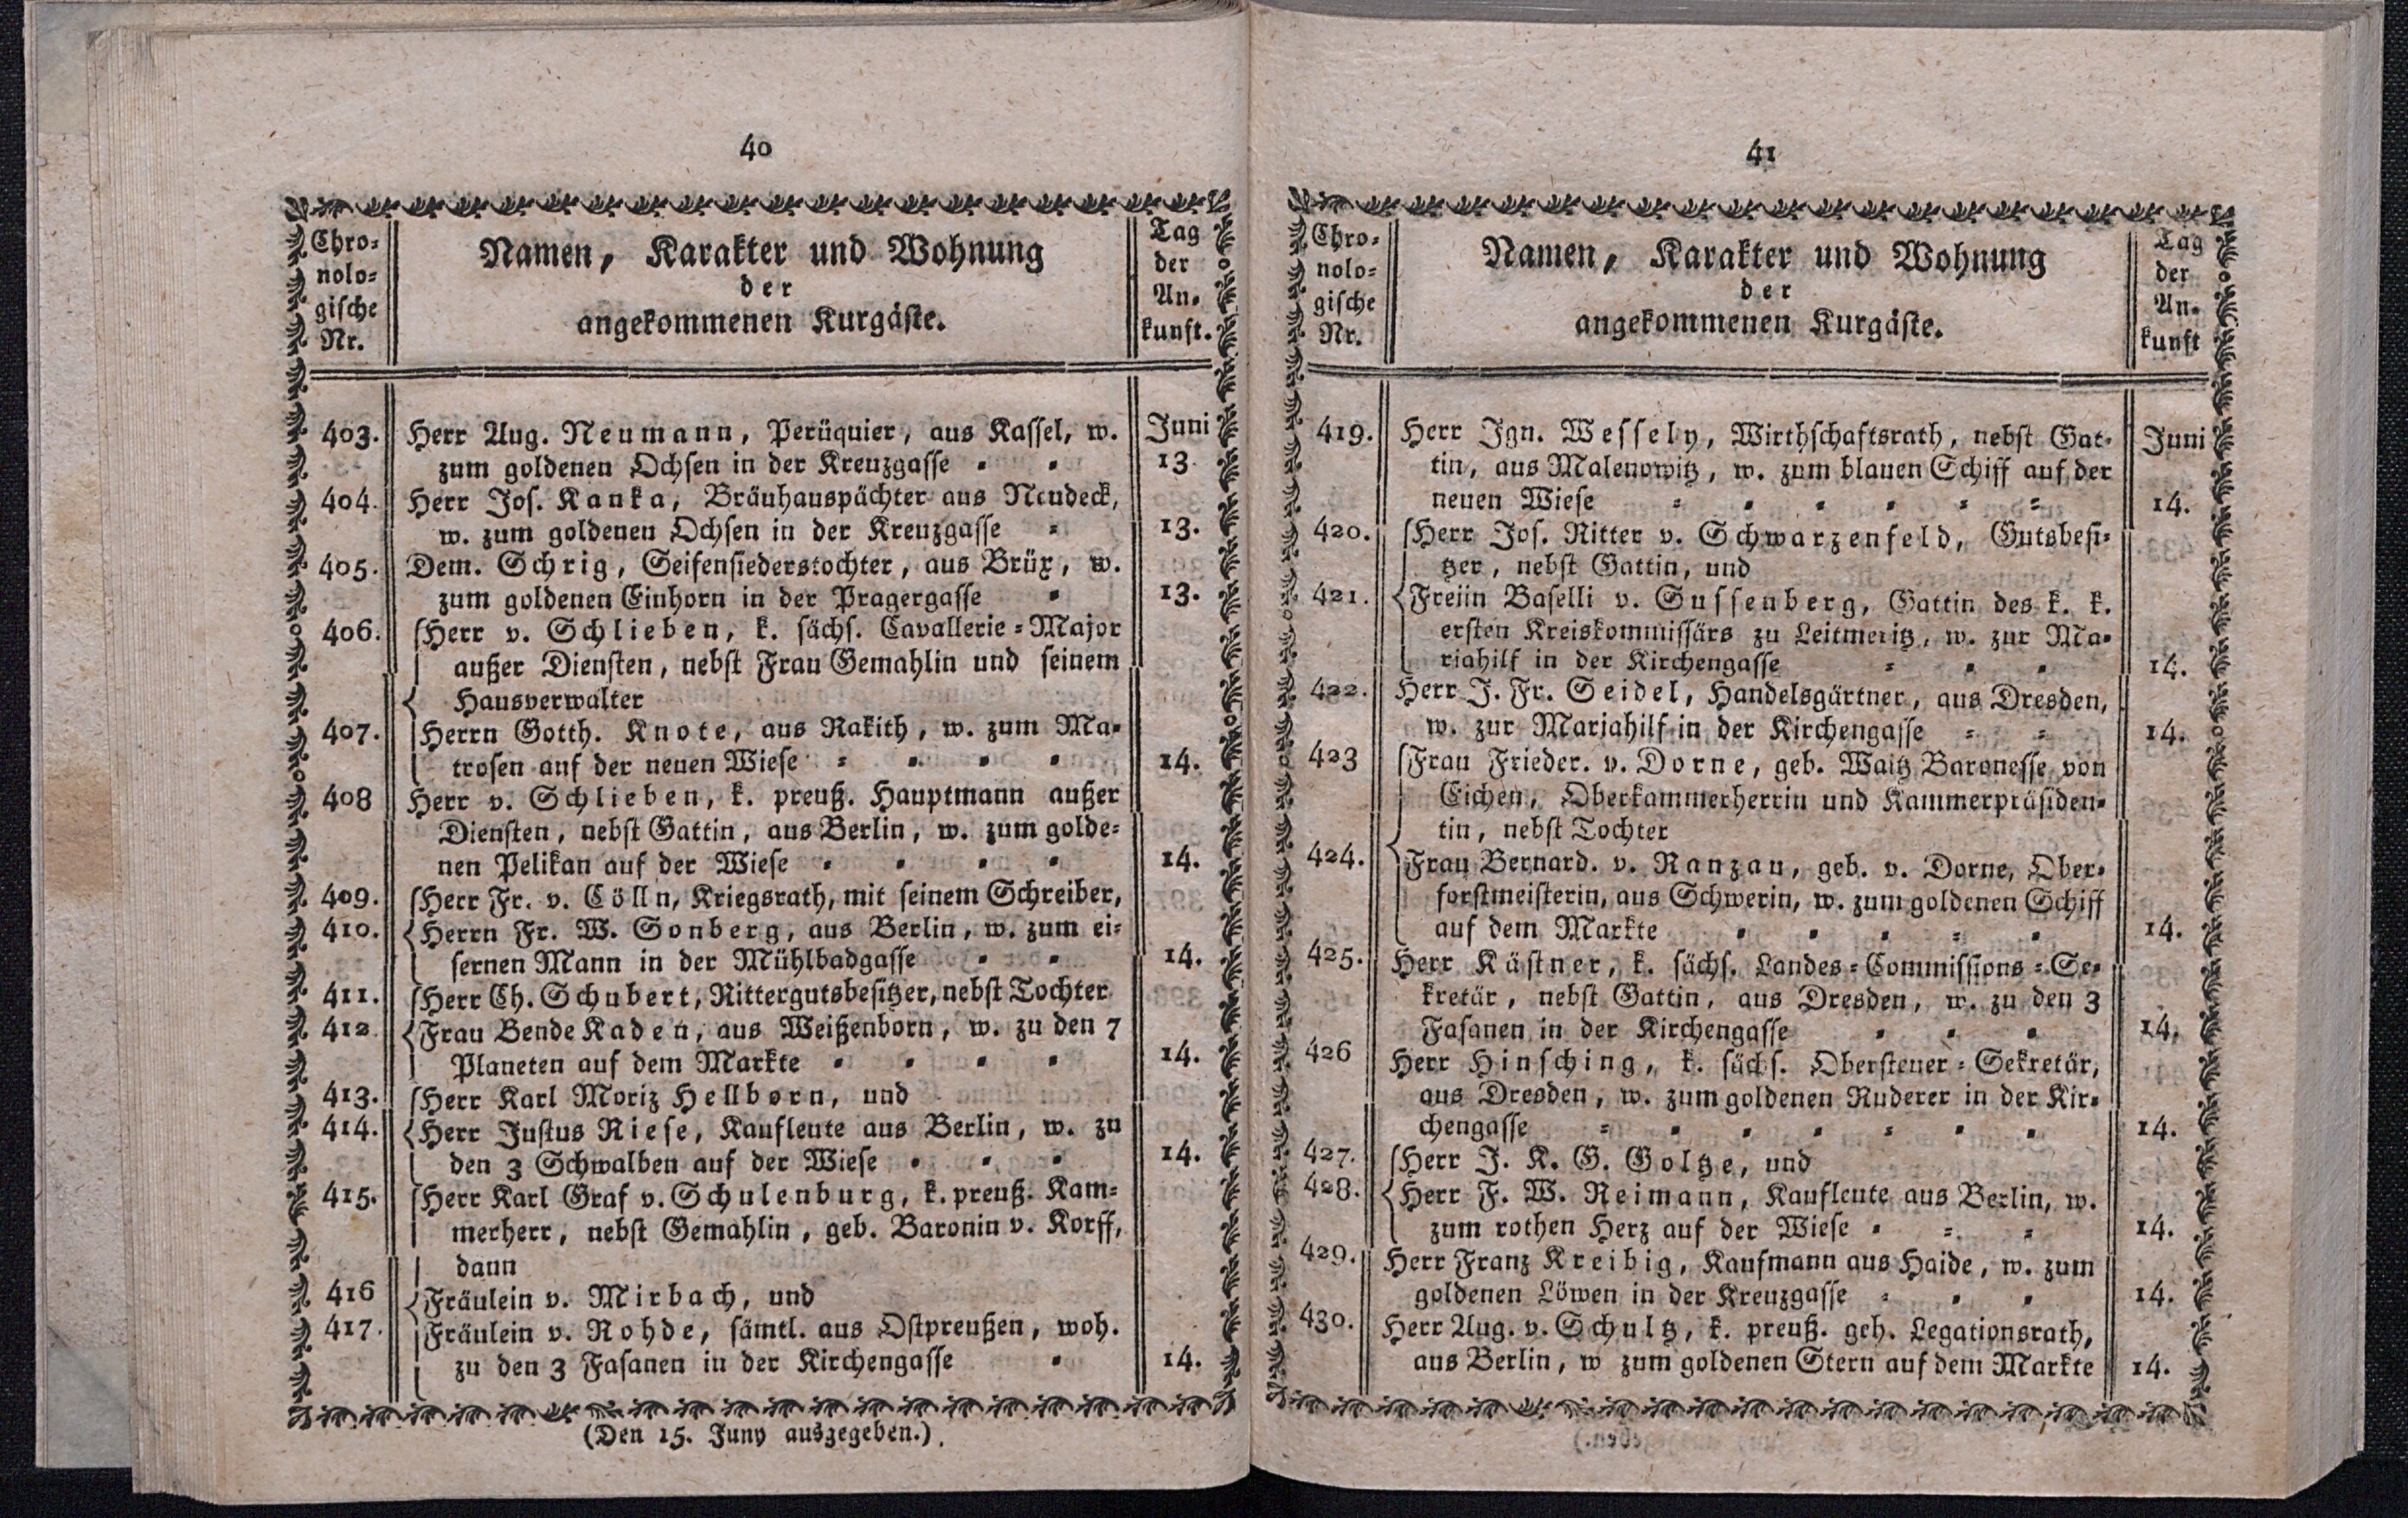 40
Chro-
nolo-
gische
Nr.
Namen, Karakter und Wohnung
der
angekommenen Kurgäste.
Tag
der
An-
kunft.
403. Herr Aug. Neumann, Perüquier, aus Kassel, w. Juni
zum goldenen Ochsen in der Kreuzgasse - - 13
404. Herr Jos. Kanka, Bräuhauspächter aus Neudeck,
w. zum goldenen Ochsen in der Kreuzgasse - 13.
405. Dem. Schrig, Seifensiederstochter, aus Brüx, w.
zum goldenen Einhorn in der Pragergasse - 13.
406. Herr v. Schlieben, k. sächs. Cavallerie-Major
außer Diensten, nebst Frau Gemahlin und seinem
Hausverwalter
407. Herrn Gotth. Knote, aus Rakith, w. zum Ma-
trosen auf der neuen Wiese - - - - 14.
408 Herr v. Schlieben, k. preuß. Hauptmann außer
Diensten, nebst Gattin, aus Berlin, w. zum golde-
nen Pelikan auf der Wiese - - - - 14.
409. Herr Fr. v. Cölln, Kriegsrath, mit seinem Schreiber,
410. Herrn Fr. W. Sonberg, aus Berlin, w. zum ei-
sernen Mann in der Mühlbadgasse - - 14.
411. Herr Ch. Schubert, Rittergutsbesitzer, nebst Tochter
412 Frau Bende Kaden, aus Weißenborn, w. zu den 7
Planeten auf dem Markte - - - - 14.
413. Herr Karl Moriz Hellborn, und
414. Herr Justus Riese, Kaufleute aus Berlin, w. zu
den 3 Schwalben auf der Wiese - - - 14.
415. Herr Karl Graf v. Schulenburg, k. preuß. Kam-
merherr, nebst Gemahlin, geb. Baronin v. Korff,
dann
416 Fräulein v. Mirbach, und
417. Fräulein v. Rohde, sämtl. aus Ostpreußen, woh.
zu den 3 Fasanen in der Kirchengasse - 14.
(Den 15. Juny auszegeben.)
41
Chro-
nolo-
gische
Nr.
Namen, Karakter und Wohnung
der
angekommenen Kurgäste.
Tag
der
An-
kunft
419. Herr Ign. Wessely, Wirthschaftsrath, nebst Gat- Juni
tin, aus Malenowitz, w. zum blauen Schiff auf der
neuen Wiese - - - - - - 14.
420. Herr Jos. Ritter v. Schwarzenfeld, Gutsbesi-
tzer, nebst Gattin, und
421. Freiin Baselli v. Sussenberg, Gattin des k. k.
ersten Kreiskommissärs zu Leitmeritz, w. zur Ma-
riahilf in der Kirchengasse - - - 14.
422. Herr J. Fr. Seidel, Handelsgärtner, aus Dresden,
w. zur Mariahilf in der Kirchengasse - - 14.
423 Frau Frieder. v. Dorne, geb. Waitz Baronesse von
Eichen, Oberkammerherrin und Kammerpräsiden-
tin, nebst Tochter
424. Frau Bernard. v. Ranzau, geb. v. Dorne, Ober-
forstmeisterin, aus Schwerin, w. zum goldenen Schiff
auf dem Markte - - - - - 14.
425. Herr Kästner, k. sächs. Landes-Commissions-Se-
kretär, nebst Gattin, aus Dresden, w. zu den 3
Fasanen in der Kirchengasse - - - 14.
426 Herr Hinsching, k. sächs. Obersteuer-Sekretär,
aus Dresden, w. zum goldenen Ruderer in der Kir-
chengasse - - - - - - - 14.
427. Herr J. K. G. Goltze, und
428. Herr F. W. Reimann, Kaufleute aus Berlin, w.
zum rothen Herz auf der Wiese - - - 14.
429. Herr Franz Kreibig, Kaufmann aus Haide, w. zum
goldenen Löwen in der Kreuzgasse - - - 14.
430. Herr Aug. v. Schultz, k. preuß. geh. Legationsrath,
aus Berlin, w zum goldenen Stern auf dem Markte 14.